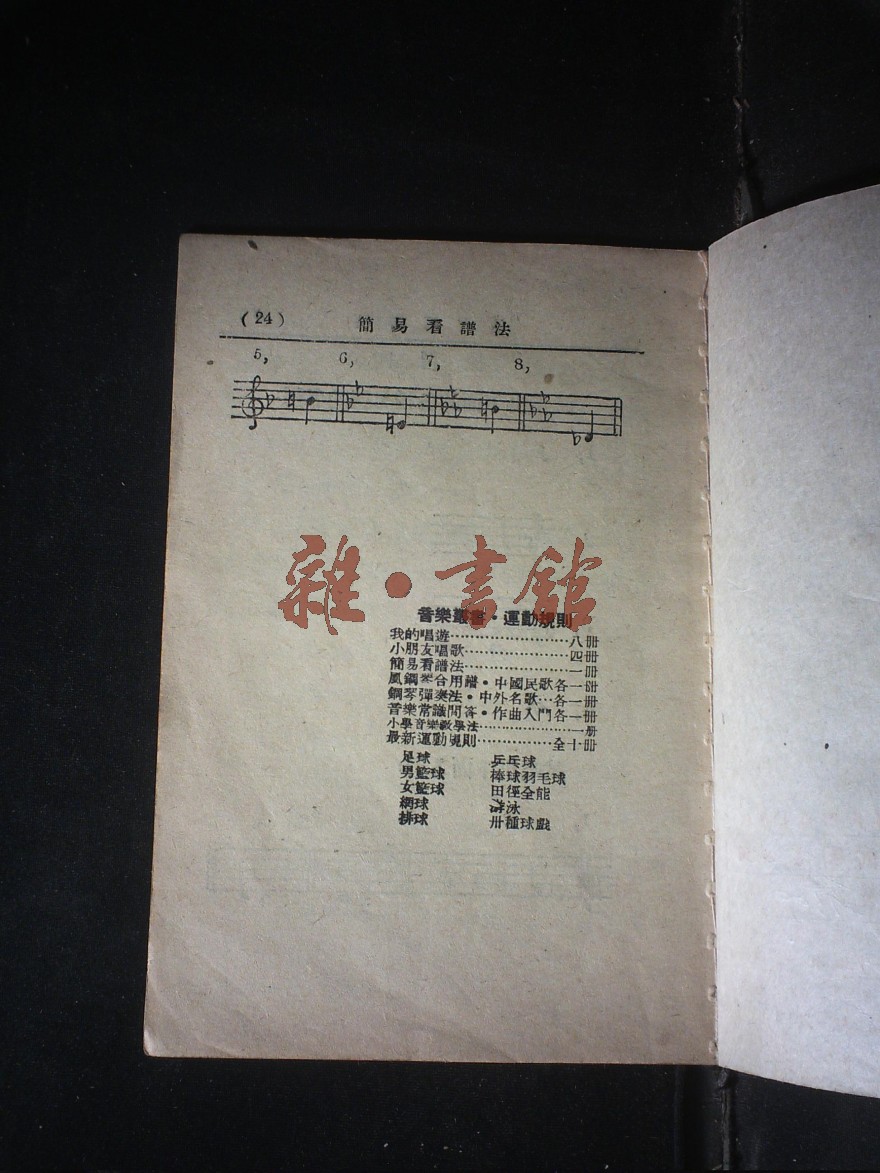 (24) 簡易看譜法
5, 6, 7, 8,
雜·書館
音樂叢書·運動規則
我的唱遊……………………八冊
小朋友唱歌…………………四冊
簡易看譜法…………………一冊
風鋼琴合用譜·中國民歌各一冊
鋼琴彈奏法·中外名歌…各一冊
音樂常識問答·作曲入門各一冊
小學音樂教學法……………一册
最新運動規則……………全十冊
足球 乒乓球
男籃球 棒球羽毛球
女籃球 田徑全能
網球 泳
排球 卅種球戲